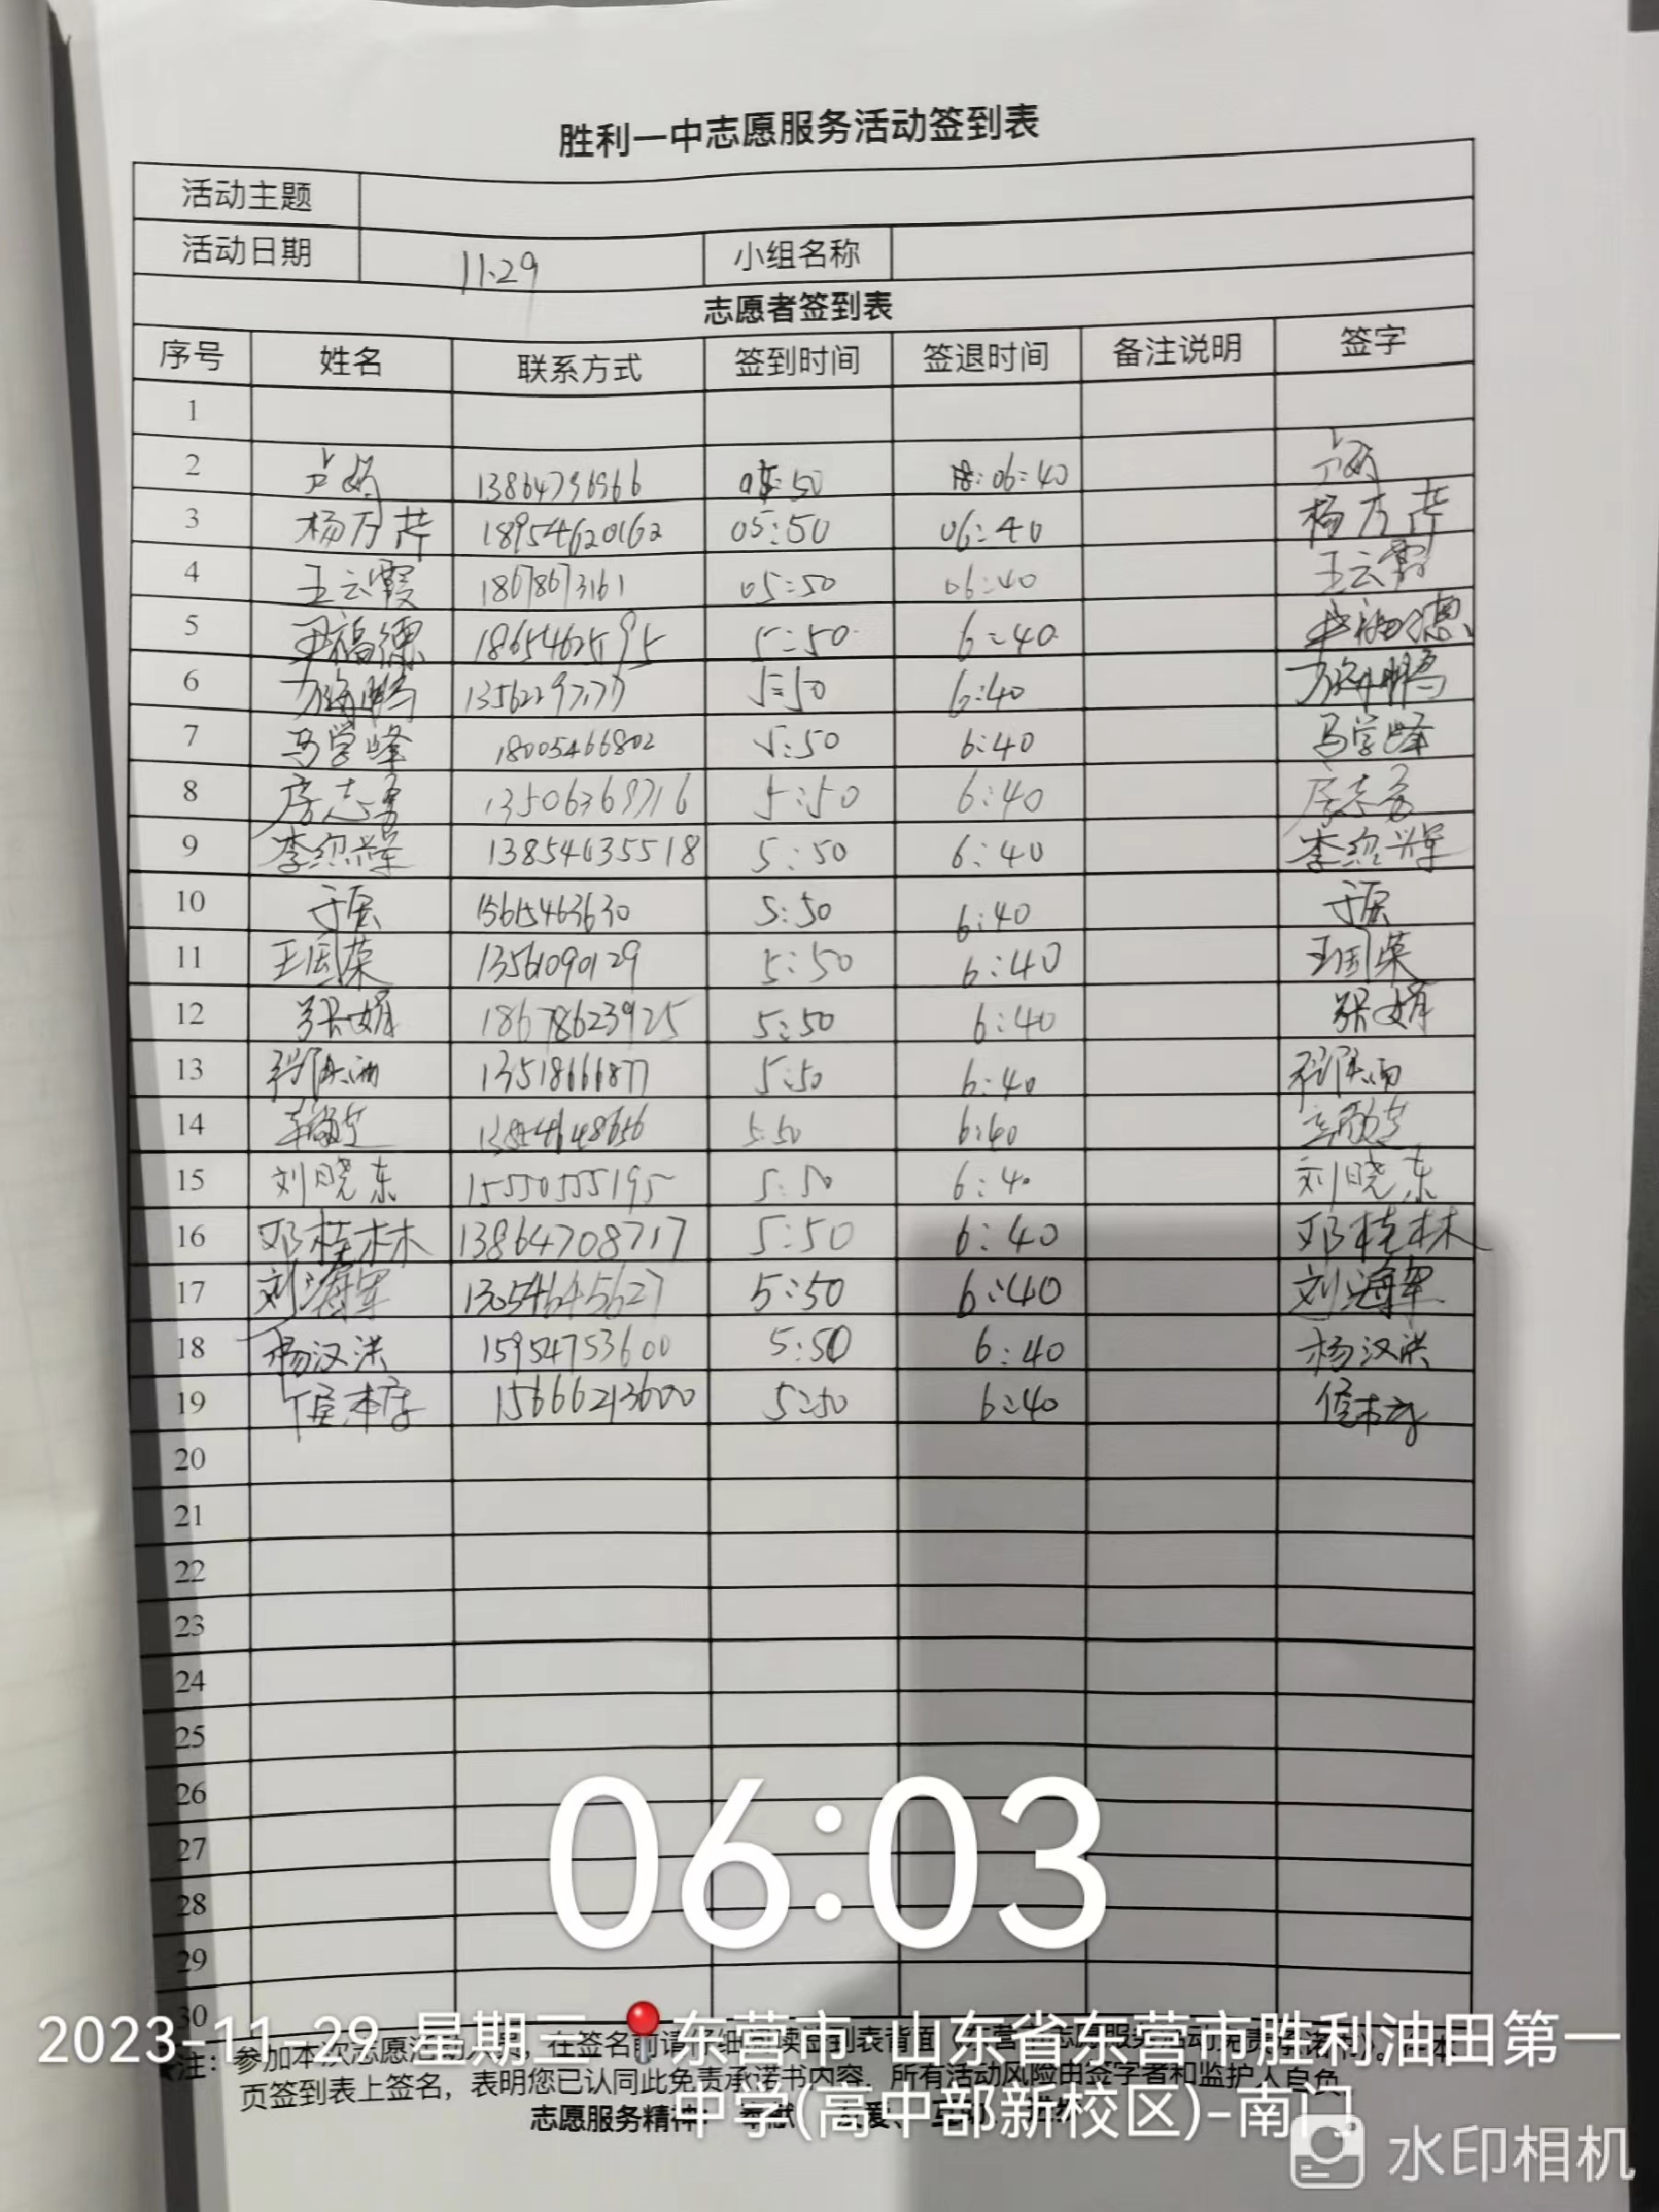 胜利一中志愿服务活动签到表
活动主题
活动日期 11.29 小组名称
志愿者签到表
序号 姓名 联系方式 签到时间 签退时间 备注说明 签字
1
2 05:50 06:40
3 杨万芹 18954620162 05:50 06:40 杨万芹
4 王云霞 18678673161 05:50 06:40 王云霞
5 尹福德 5:50 6:40
6 5:50 6:40
7 马学峰 18005466802 5:50 6:40 马学峰
8 房志勇 5:50 6:40 房志勇
9 李绍辉 13854635518 5:50 6:40 李绍辉
10 于辰 15615463630 5:50 6:40 于辰
11 王国荣 13561090129 5:50 6:40 王国荣
12 张娟 18678623925 5:50 6:40 张娟
13 13518666877 5:50 6:40
14 5:50 6:40
15 刘晓东 15550555195 5:50 6:40 刘晓东
16 邓桂林 13864708717 5:50 6:40 邓桂林
17 刘海军 13054645627 5:50 6:40 刘海军
18 杨汉洪 15954753600 5:50 6:40 杨汉洪
19 15666213600 5:50 6:40
20
21
22
23
24
25
26
27
28
29
30
06:03
2023-11-29 星期三 东营市·山东省东营市胜利油田第一
中学(高中部新校区)-南门
注：参加本次志愿活动人员，在签名前请仔细阅读签到表背面
页签到表上签名，表明您已认同此免责承诺书内容，所有活动风险由签字者和监护人自负
志愿服务精神：
水印相机